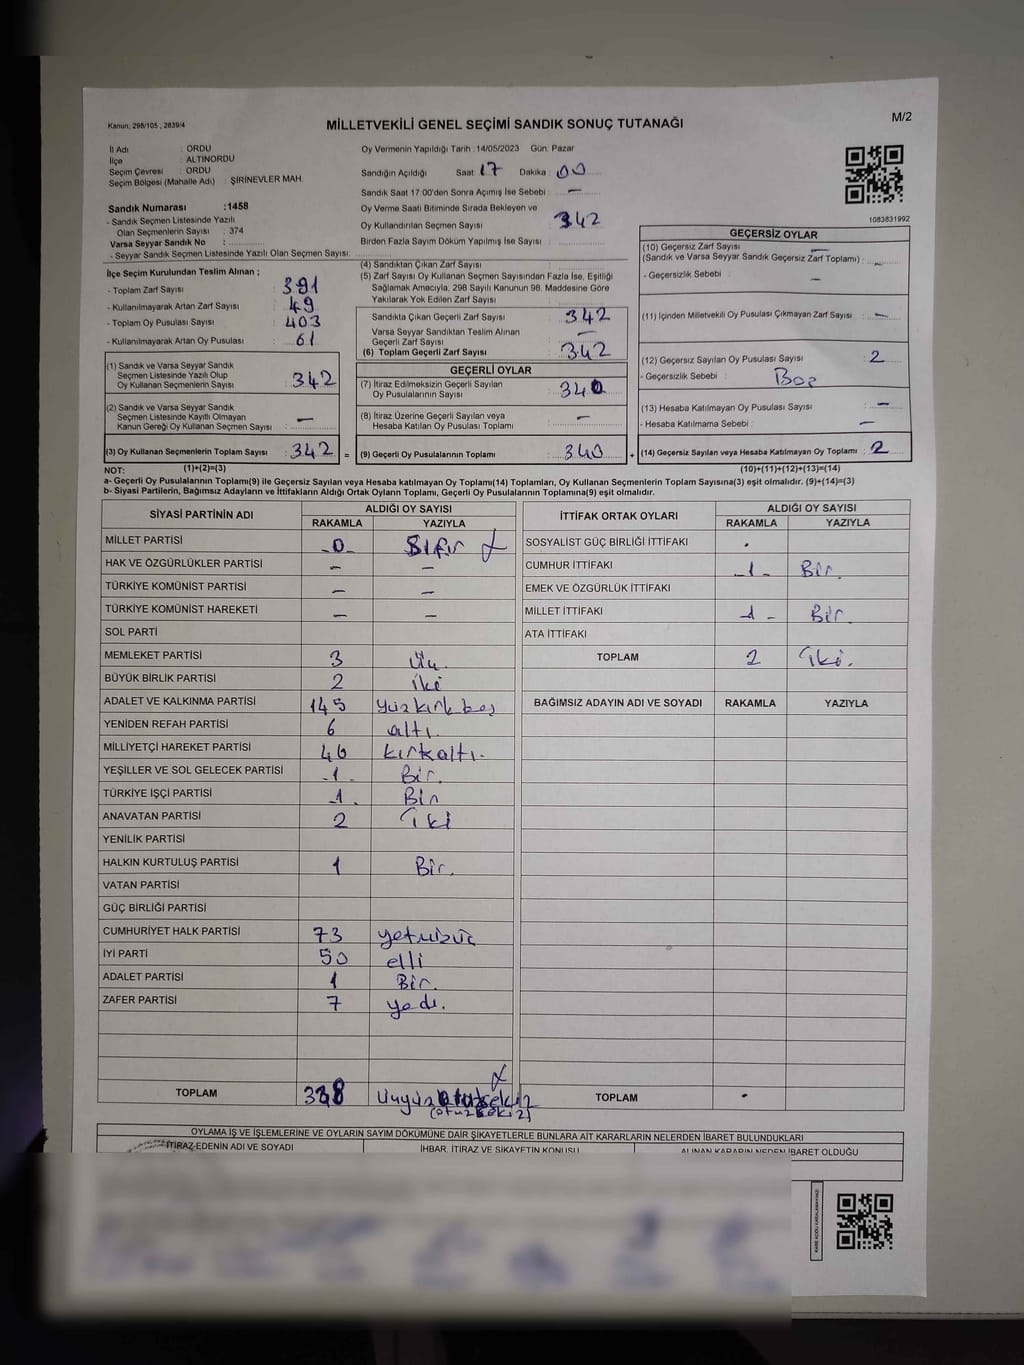 Kanun; 298/105 , 2839/4
MİLLETVEKİLİ GENEL SEÇİMİ SANDIK SONUÇ TUTANAĞI
M/2
İl Adı : ORDU
İlçe : ALTINORDU
Seçim Çevresi : ORDU
Seçim Bölgesi (Mahalle Adı) : ŞİRİNEVLER MAH.
Sandık Numarası :1458
- Sandık Seçmen Listesinde Yazılı
Olan Seçmenlerin Sayısı : 374
Varsa Seyyar Sandık No :
- Seyyar Sandık Seçmen Listesinde Yazılı Olan Seçmen Sayısı:
Oy Vermenin Yapıldığı Tarih :14/05/2023 Gün: Pazar
Sandığın Açıldığı Saat: 17 Dakika : 00
Sandık Saat 17:00'den Sonra Açımış İse Sebebi : —
Oy Verme Saati Bitiminde Sırada Bekleyen ve
Oy Kullandırılan Seçmen Sayısı : 342
Birden Fazla Sayım Döküm Yapılmış İse Sayısı :
1083831992
İlçe Seçim Kurulundan Teslim Alınan ;
- Toplam Zarf Sayısı : 391
- Kullanılmayarak Artan Zarf Sayısı : 49
- Toplam Oy Pusulası Sayısı : 403
- Kullanılmayarak Artan Oy Pusulası : 61
(1) Sandık ve Varsa Seyyar Sandık
Seçmen Listesinde Yazılı Olup
Oy Kullanan Seçmenlerin Sayısı : 342
(2) Sandık ve Varsa Seyyar Sandık
Seçmen Listesinde Kayıtlı Olmayan
Kanun Gereği Oy Kullanan Seçmen Sayısı : —
(3) Oy Kullanan Seçmenlerin Toplam Sayısı : 342 =
(4) Sandıktan Çıkan Zarf Sayısı :
(5) Zarf Sayısı Oy Kullanan Seçmen Sayısından Fazla İse, Eşitliği
Sağlamak Amacıyla; 298 Sayılı Kanunun 98. Maddesine Göre
Yakılarak Yok Edilen Zarf Sayısı :
Sandıkta Çıkan Geçerli Zarf Sayısı : 342
Varsa Seyyar Sandıktan Teslim Alınan
Geçerli Zarf Sayısı : —
(6) Toplam Geçerli Zarf Sayısı : 342
GEÇERLİ OYLAR
(7) İtiraz Edilmeksizin Geçerli Sayılan
Oy Pusulasının Sayısı : 340
(8) İtiraz Üzerine Geçerli Sayılan veya
Hesaba Katılan Oy Pusulası Toplamı : —
(9) Geçerli Oy Pusulalarının Toplamı : 340 +
GEÇERSİZ OYLAR
(10) Geçersiz Zarf Sayısı —
(Sandık ve Varsa Seyyar Sandık Geçersiz Zarf Toplamı) : —
- Geçersizlik Sebebi : —
(11) İçinden Milletvekili Oy Pusulası Çıkmayan Zarf Sayısı : —
(12) Geçersiz Sayılan Oy Pusulası Sayısı : 2
- Geçersizlik Sebebi : Boş
(13) Hesaba Katılmayan Oy Pusulası Sayısı : —
- Hesaba Katılmama Sebebi : —
(14) Geçersiz Sayılan veya Hesaba Katılmayan Oy Toplamı : 2
NOT: (1)+(2)=(3) (10)+(11)+(12)+(13)=(14)
a- Geçerli Oy Pusulalarının Toplamı(9) ile Geçersiz Sayılan veya Hesaba katılmayan Oy Toplamı(14) Toplamları, Oy Kullanan Seçmenlerin Toplam Sayısına(3) eşit olmalıdır. (9)+(14)=(3)
b- Siyasi Partilerin, Bağımsız Adayların ve İttifakların Aldığı Ortak Oyların Toplamı, Geçerli Oy Pusulalarının Toplamına(9) eşit olmalıdır.
SİYASİ PARTİNİN ADI ALDIĞI OY SAYISI
RAKAMLA YAZIYLA
MİLLET PARTİSİ -0- Sıfır
HAK VE ÖZGÜRLÜKLER PARTİSİ — —
TÜRKİYE KOMÜNİST PARTİSİ — —
TÜRKİYE KOMÜNİST HAREKETİ — —
SOL PARTİ
MEMLEKET PARTİSİ 3 Üç.
BÜYÜK BİRLİK PARTİSİ 2 iki
ADALET VE KALKINMA PARTİSİ 145 yüzkırkbeş
YENİDEN REFAH PARTİSİ 6 altı.
MİLLİYETÇİ HAREKET PARTİSİ 46 kırkaltı.
YEŞİLLER VE SOL GELECEK PARTİSİ -1- Bir.
TÜRKİYE İŞÇİ PARTİSİ -1. Bir
ANAVATAN PARTİSİ 2 iki
YENİLİK PARTİSİ
HALKIN KURTULUŞ PARTİSİ 1 Bir.
VATAN PARTİSİ
GÜÇ BİRLİĞİ PARTİSİ
CUMHURİYET HALK PARTİSİ 73 yetmişüç
İYİ PARTİ 50 elli
ADALET PARTİSİ 1 Bir.
ZAFER PARTİSİ 7 yedi.
TOPLAM 338 Üçyüzotuzsekiz
(otuzsekiz)
İTTİFAK ORTAK OYLARI ALDIĞI OY SAYISI
RAKAMLA YAZIYLA
SOSYALİST GÜÇ BİRLİĞİ İTTİFAKI .
CUMHUR İTTİFAKI -1- Bir.
EMEK VE ÖZGÜRLÜK İTTİFAKI
MİLLET İTTİFAKI -1- Bir.
ATA İTTİFAKI
TOPLAM 2 iki.
BAĞIMSIZ ADAYIN ADI VE SOYADI RAKAMLA YAZIYLA
TOPLAM .
OYLAMA İŞ VE İŞLEMLERİNE VE OYLARIN SAYIM DÖKÜMÜNE DAİR ŞİKAYETLERLE BUNLARA AİT KARARLARIN NELERDEN İBARET BULUNDUKLARI
İTİRAZ EDENİN ADI VE SOYADI İHBAR, İTİRAZ VE ŞİKAYETİN KONUSU ALINAN KARARIN NEDEN İBARET OLDUĞU